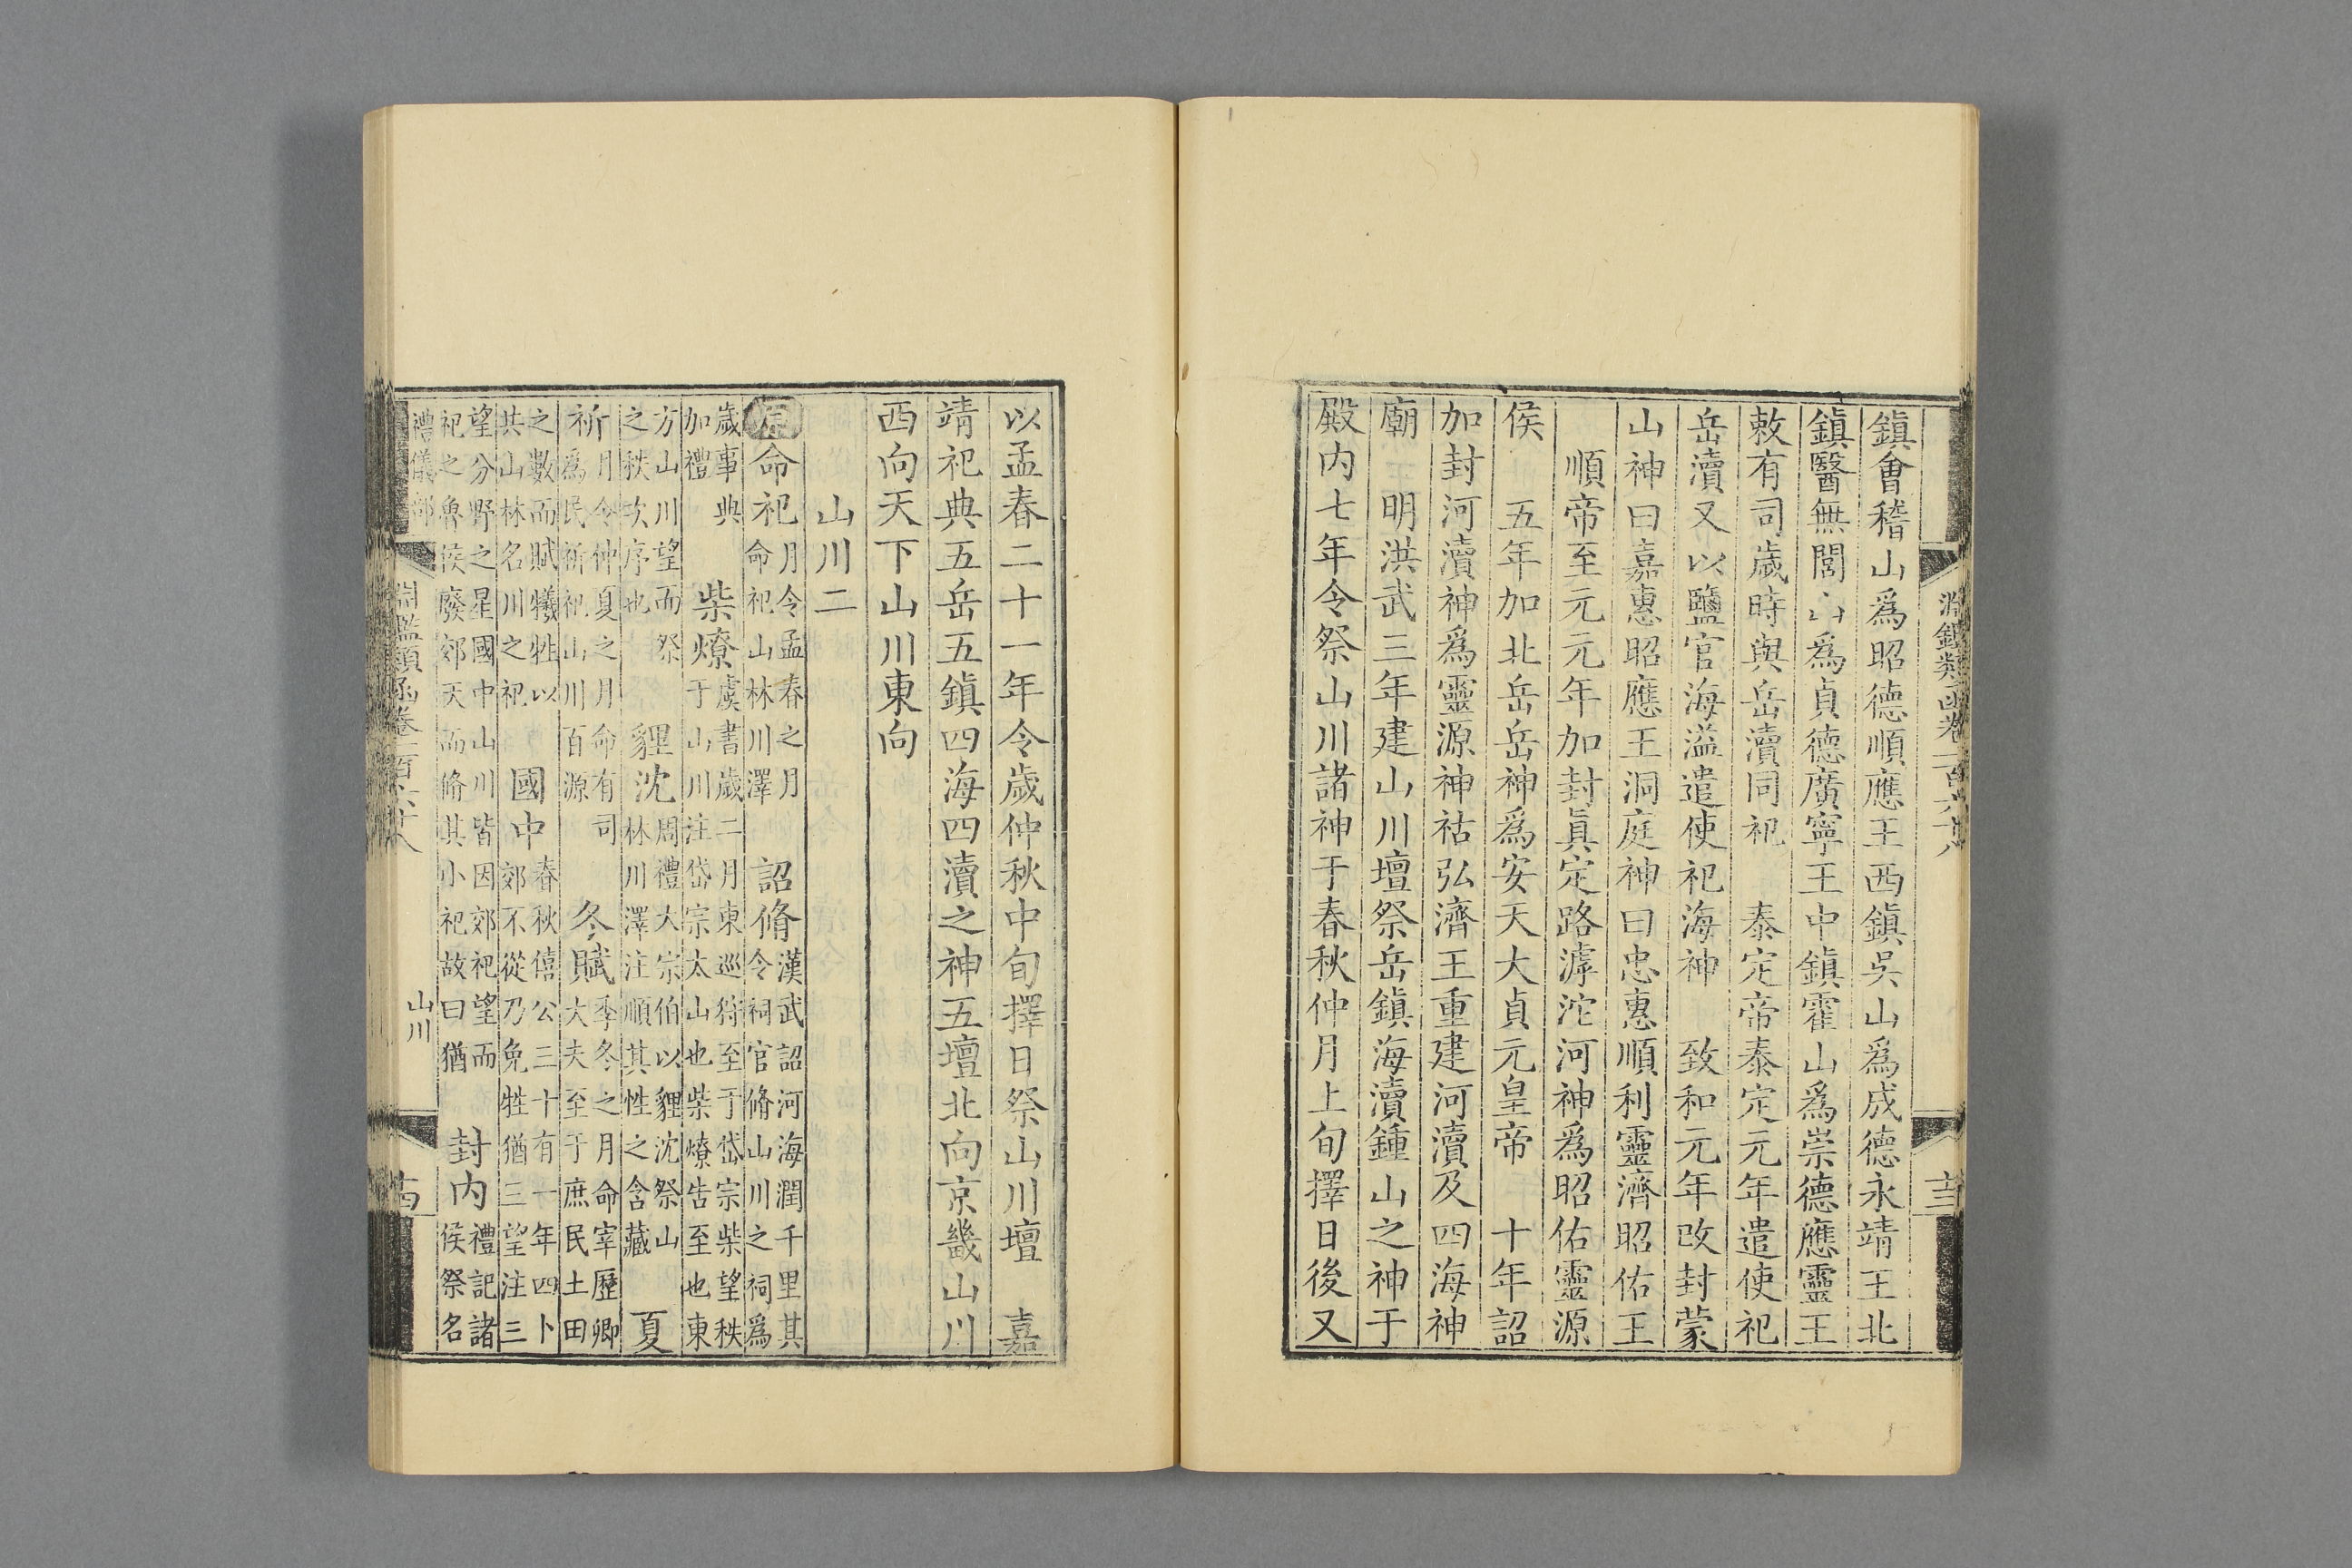 鎮會稽山爲昭德順應王西鎮吳山爲成德永靖王北
鎮醫無閭山爲貞德廣寧王中鎮霍山爲崇德應靈王
敕有司歲時與岳瀆同祀　泰定帝泰定元年遣使祀
岳瀆又以鹽官海溢遣使祀海神　致和元年改封蒙
山神曰嘉惠昭應王洞庭神曰忠惠順利靈濟昭佑王
順帝至元元年加封眞定路滹沱河神爲昭佑靈源
侯　五年加北岳岳神爲安天大貞元皇帝　十年詔
加封河瀆神爲靈源神祜弘濟王重建河瀆及四海神
廟　明洪武三年建山川壇祭岳鎮海瀆鍾山之神于
殿内七年令祭山川諸神于春秋仲月上旬擇日後又
以孟春二十一年令歲仲秋中旬擇日祭山川壇　嘉
靖祀典五岳五鎮四海四瀆之神五壇北向京畿山川
西向天下山川東向
山川二
命祀月令孟春之月命祀山林川澤　詔脩漢武詔河海潤千里其令祠官脩山川之祠爲
歲事典加禮　柴燎虞書歲二月東巡狩至于岱宗柴望秩于山川注岱宗太山也柴燎告至也東
方山川望而祭之秩次序也　貍沈周禮大宗伯以貍沈祭山林川澤注順其性之含藏　夏
祈月令仲夏之月命有司爲民祈祀山川百源　冬賦季冬之月命宰歷卿大夫至于庶民土田
之數而賦犧牲以共山林名川之祀　國中春秋僖公三十有一年四卜郊不從乃免牲猶三望注三
望分野之星國中山川皆因郊祀望而祀之魯侯廢郊天而脩其小祀故曰猶　封内禮記諸侯祭名
淵鑑類函卷一百六十八
山川